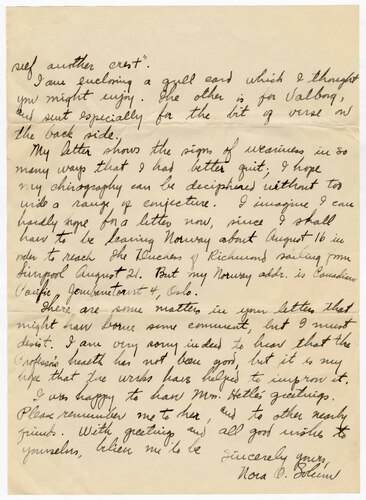 self another crest".
I am enclosing a gull card which I thought
you might enjoy. The other is for Valborg,
and sent especially for the bit of verse on
the back side.
My letter shows the signs of weariness in so
many ways that I had better quit; I hope
my chirography can be deciphered without too
wide a range of conjecture. I imagine I can
hardly hope for a letter now, since I shall
have to be leaving Norway about August 16 in
order to reach The Duchess of Richmond sailing from
Liverpool August 21. But my Norway addr. is Canadian
Pacific, 4, Oslo.
There are some matters in your letters that
might have borne some comment, but I must
desist. I am very sorry indeed to hear that the
Professor's health has not been good, but it is my
hope that the weeks have helped to improve it.
I was happy to have Mrs. Hetle's greetings.
Please remember me to her, and to other nearby
friends. With greetings and all good wishes to
yourselves, believe me to be
Sincerely yours,
Nora O. Solum